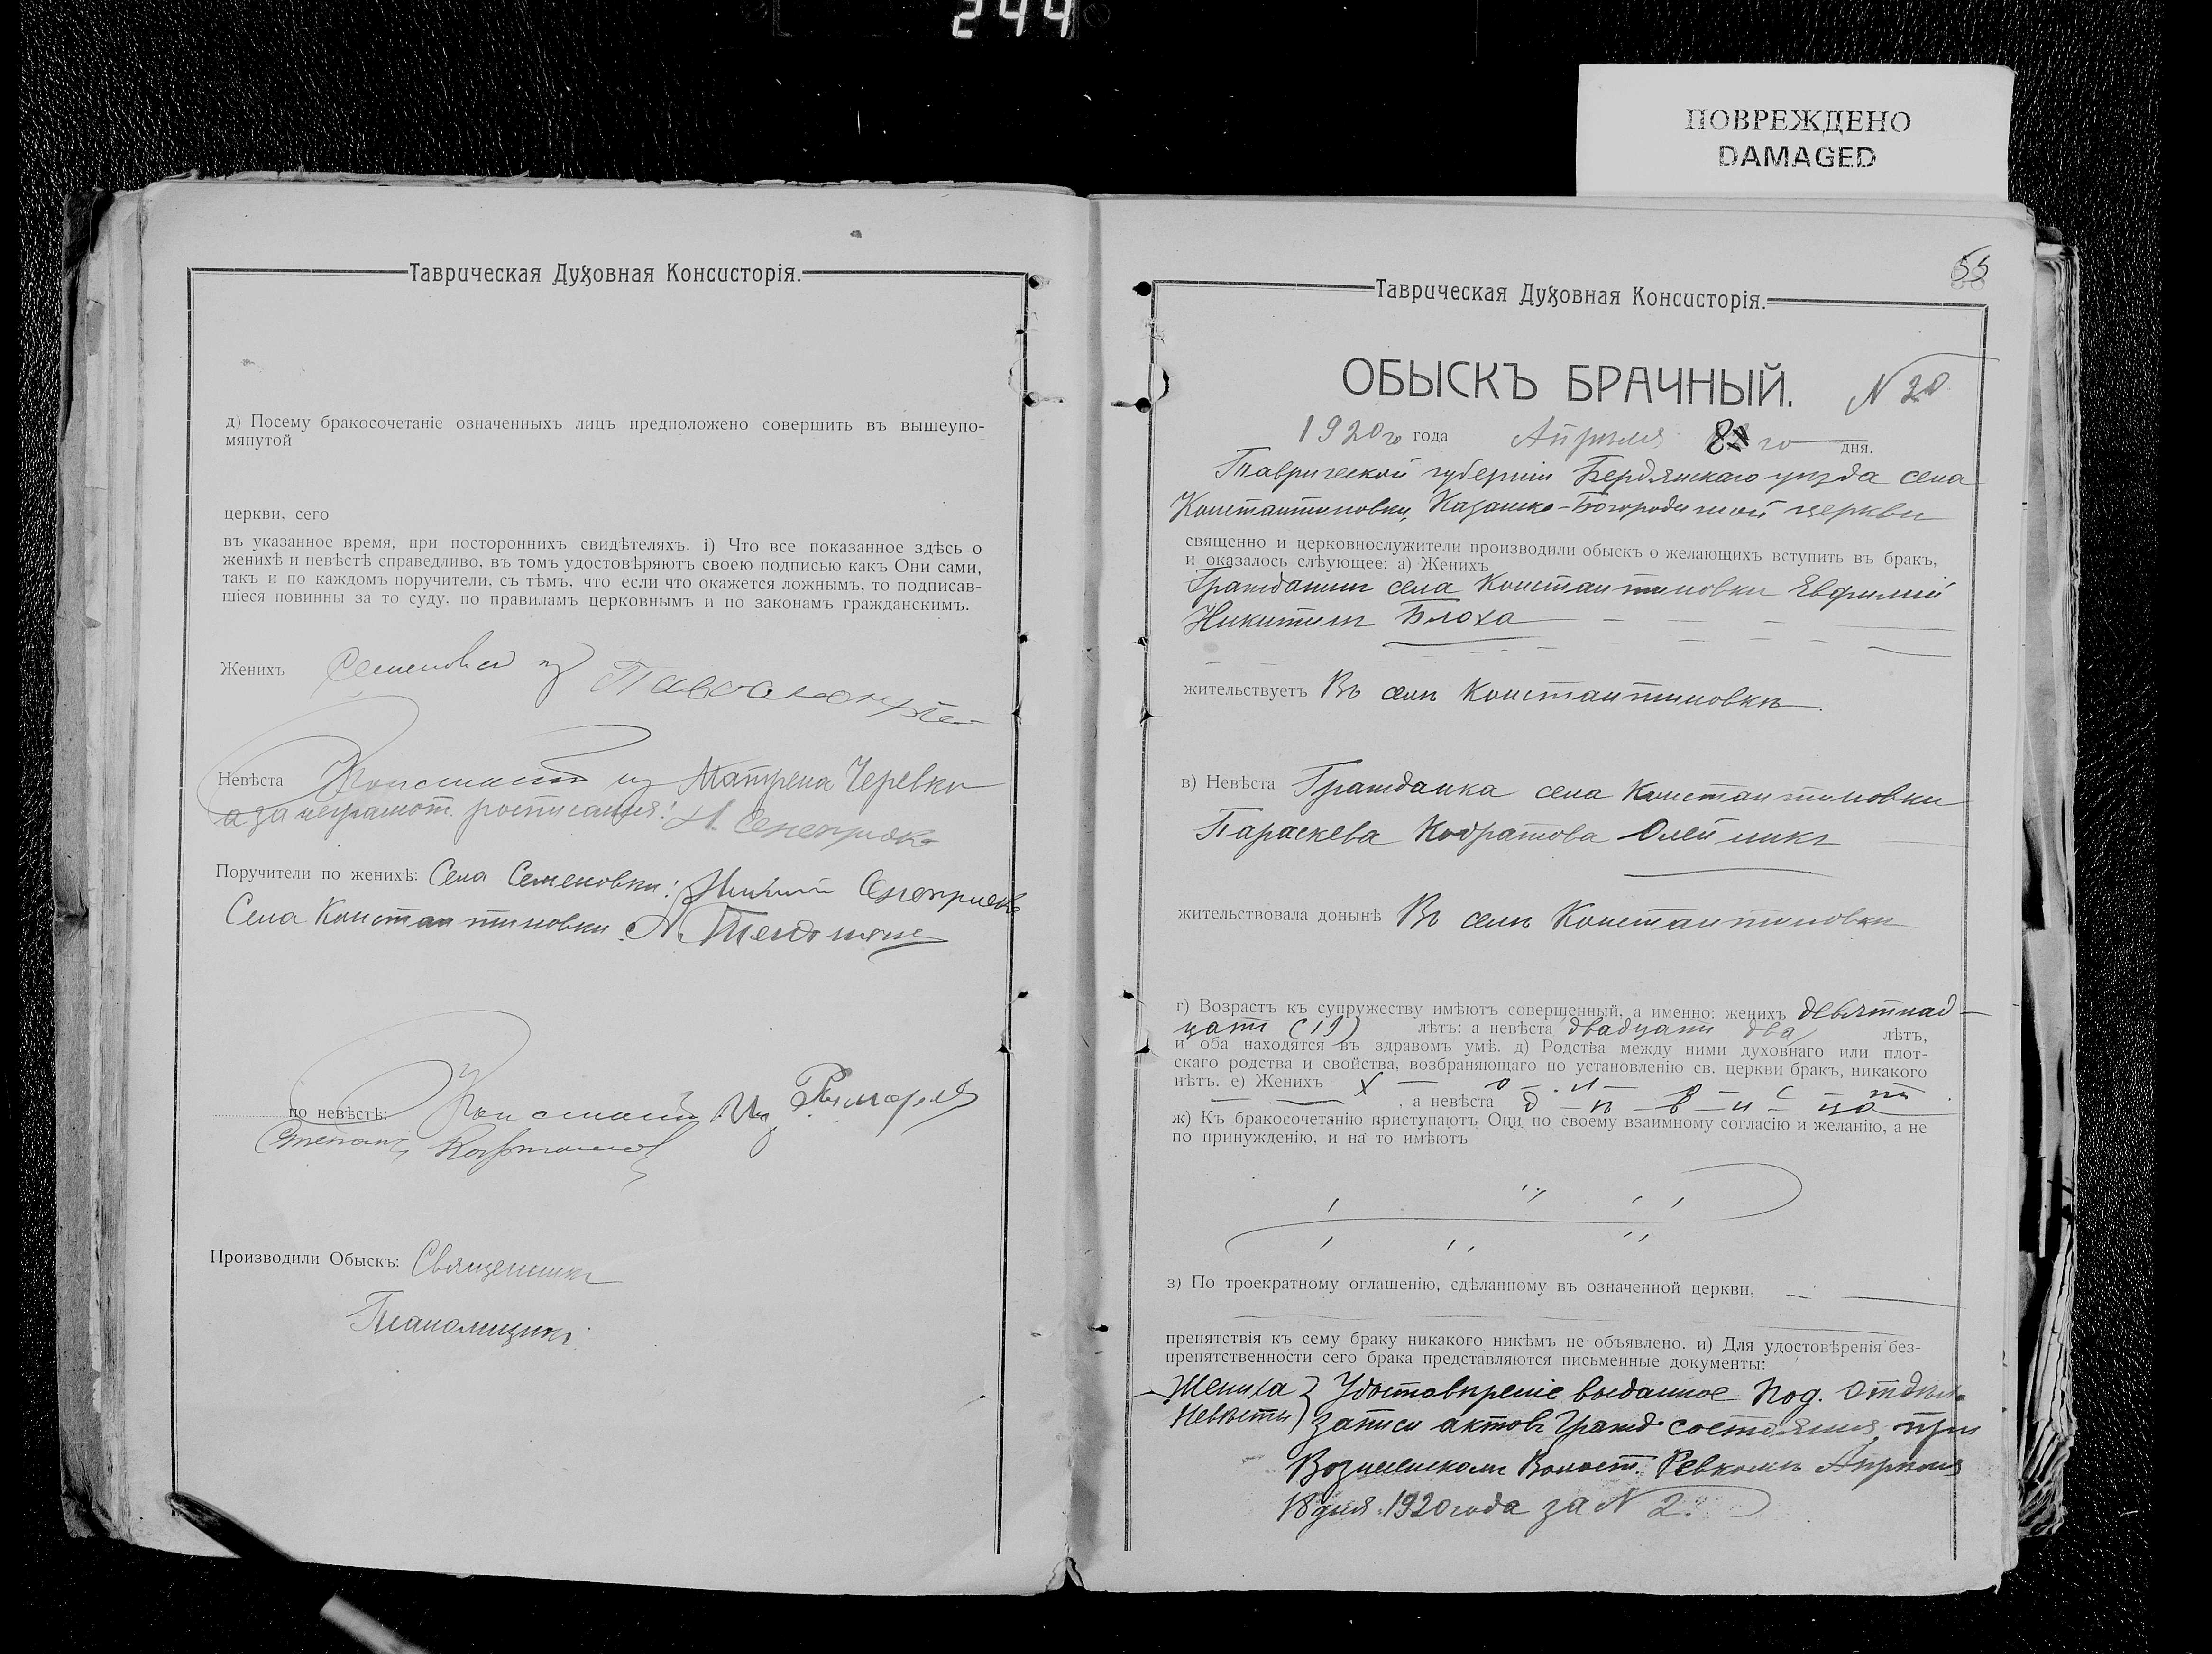 244
ПОВРЕЖДЕНО
DAMAGED
Таврическая Духовная Консисторія.
д) Посему бракосочетаніе означенныхъ лицъ предположено совершить въ вышеупо-
мянутой
церкви, сего
въ указанное время, при постороннихъ свидѣтеляхъ. і) Что все показанное здѣсь о
женихѣ и невѣстѣ справедливо, въ томъ удостовѣряютъ своею подписью какъ Они сами,
такъ и по каждомъ поручители, съ тѣмъ, что если что окажется ложнымъ, то подписав-
шіеся повинны за то суду, по правиламъ церковнымъ и по законамъ гражданскимъ.
Женихъ
Невѣста Матрена Черевко
а за неграмот. росписался:
Поручители по женихѣ: Села Семеновки:
Села Константиновки
по невѣстѣ:
Степанъ
Производили Обыскъ: Священникъ
55
Таврическая Духовная Консисторія.
ОБЫСКЪ БРАЧНЫЙ. N 20
1920го года Апрѣля 8 го дня.
Таврической губерніи Бердянскаго уѣзда села
Константиновки, Казанско-Богородичной церкви
священно и церковнослужители производили обыскъ о желающихъ вступить въ бракъ,
и оказалось слѣующее: а) Женихъ
Гражданинъ села Константиновки Евфимій
Никитинъ Блоха
жительствуетъ Въ селѣ Константиновкѣ
в) Невѣста Гражданка села Константиновки
Параскева Кодратова Олейникъ
жительствовала донынѣ Въ селѣ Константиновки
г) Возрастъ къ супружеству имѣютъ совершенный, а именно: женихъ девятнад-
цати (19) лѣтъ: а невѣста двадцати два лѣтъ,
и оба находятся въ здравомъ умѣ. д) Родства между ними духовнаго или плот-
скаго родства и свойства, возбраняющаго по установленію св. церкви бракъ, никакого
нѣтъ. е) Женихъ х — о — л — о — с — т
, а невѣста д — ѣ — в — и — ца
ж) Къ бракосочетанію приступаютъ Они по своему взаимному согласію и желанію, а не
по принужденію, и на то имѣютъ
з) По троекратному оглашенію, сдѣланному въ означенной церкви,
препятствія къ сему браку никакого никѣмъ не объявлено. и) Для удостовѣренія без-
препятственности сего брака представляются письменные документы:
Жениха } Удостовѣреніе выданное Под. Отдѣл.
Невѣсты } записи актовъ Гражд состоянія при
Вознесенскомъ Волост. Ревкомѣ Апрѣля
18 дня 1920 года за N 2.